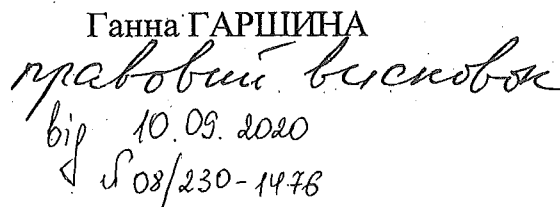 Ганна ГАРШИНА
правовий висновок
від 10.09.2020
№ 08/230-1476